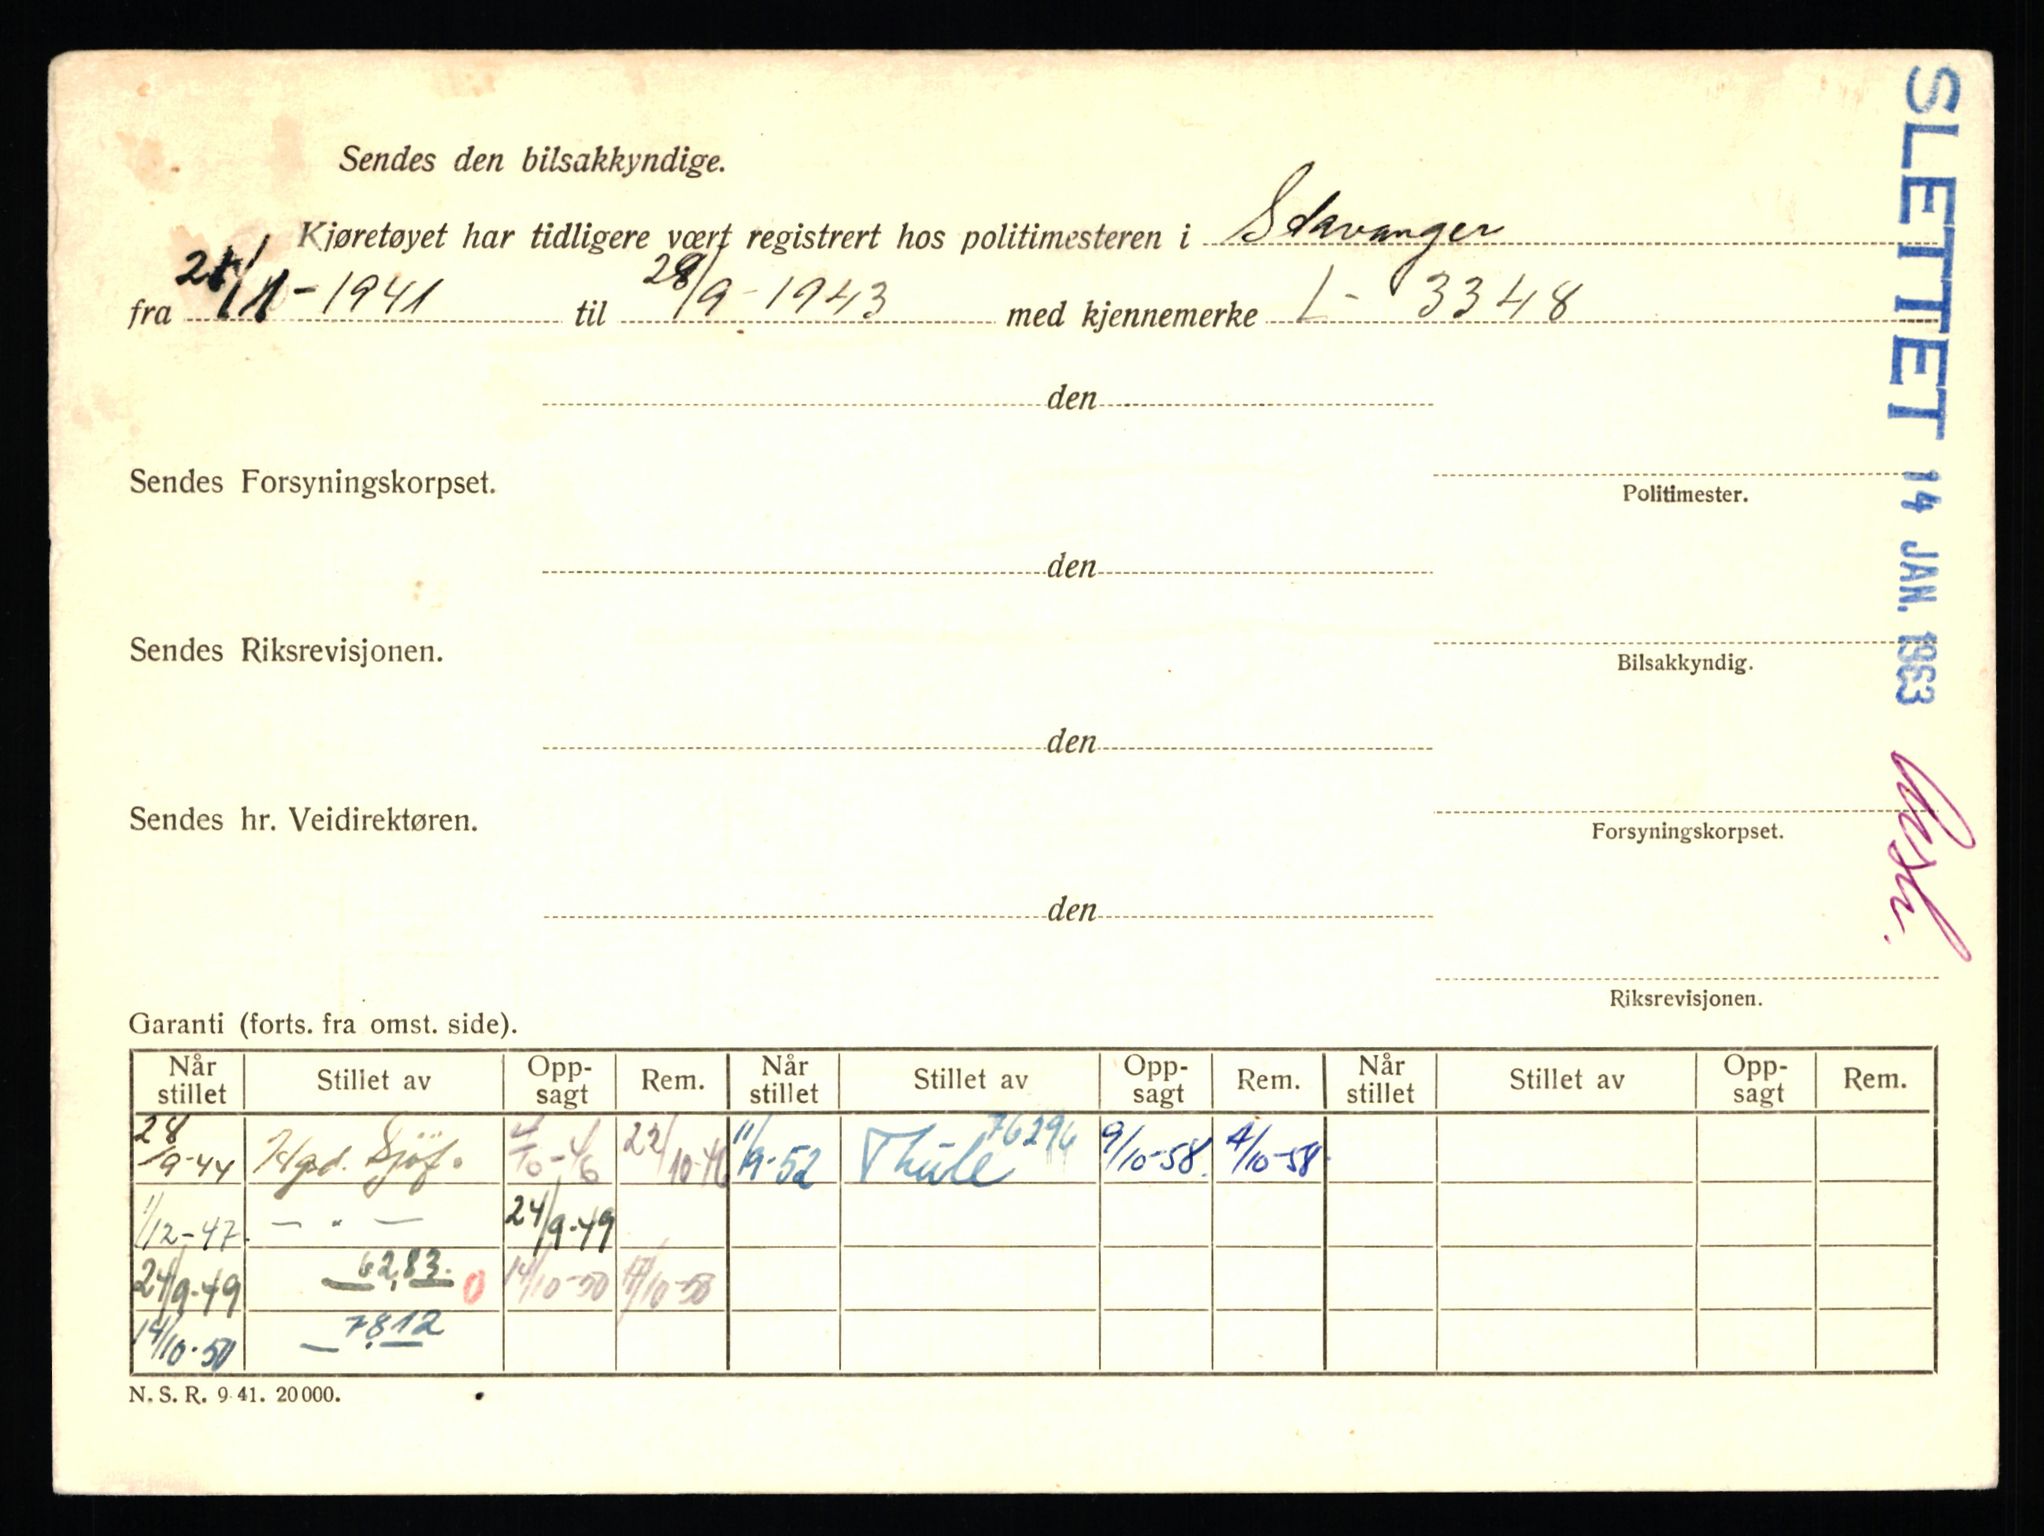 Sendes den bilsakkyndige.
Kjøretøyet har tidligere vært registrert hos politimesteren i Stavanger
fra 21/11-1941 til 28/9-1943 med kjennemerke L- 3348
den
Sendes Forsyningskorpset.
Politimester.
den
Sendes Riksrevisjonen.
Bilsakkyndig.
den
Sendes hr. Veidirektøren.
Forsyningskorpset.
den
Riksrevisjonen.
SLETTET 14 JAN. 1963
Garanti (forts. fra omst. side).
Når stillet Stillet av Opp-sagt Rem. Når stillet Stillet av Opp-sagt Rem. Når stillet Stillet av Opp-sagt Rem.
28/9-44 Sjöf. 22/10-46 11/9-52 Thule 76296 9/10-58. 4/10-58
1/12-47. — " — 24/9-49
24/9-49 6283. 0 14/10-50 17/10-50
14/10-50 7812
N. S. R. 9 41. 20 000.